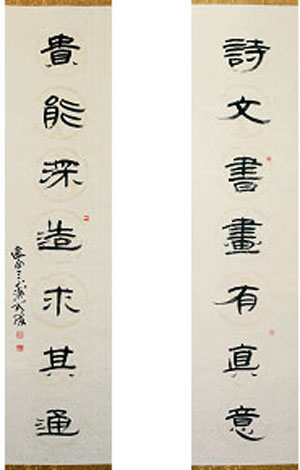 詩文書畫有真意
貴能深造求其通